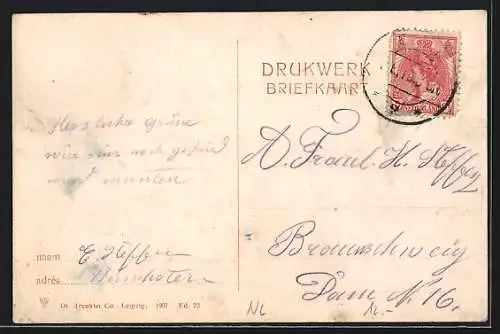 DRUKWERK
BRIEFKAART
Herzliche Grüsse
wir sind noch gesund
und munter
A. Fraul. H. Steffen
Braunschweig
Dam N. 16.
naam E. Steffen
adrés
Dr. Trenkler Co. Leipzig, 1907 Ed. 72
NL
12.-